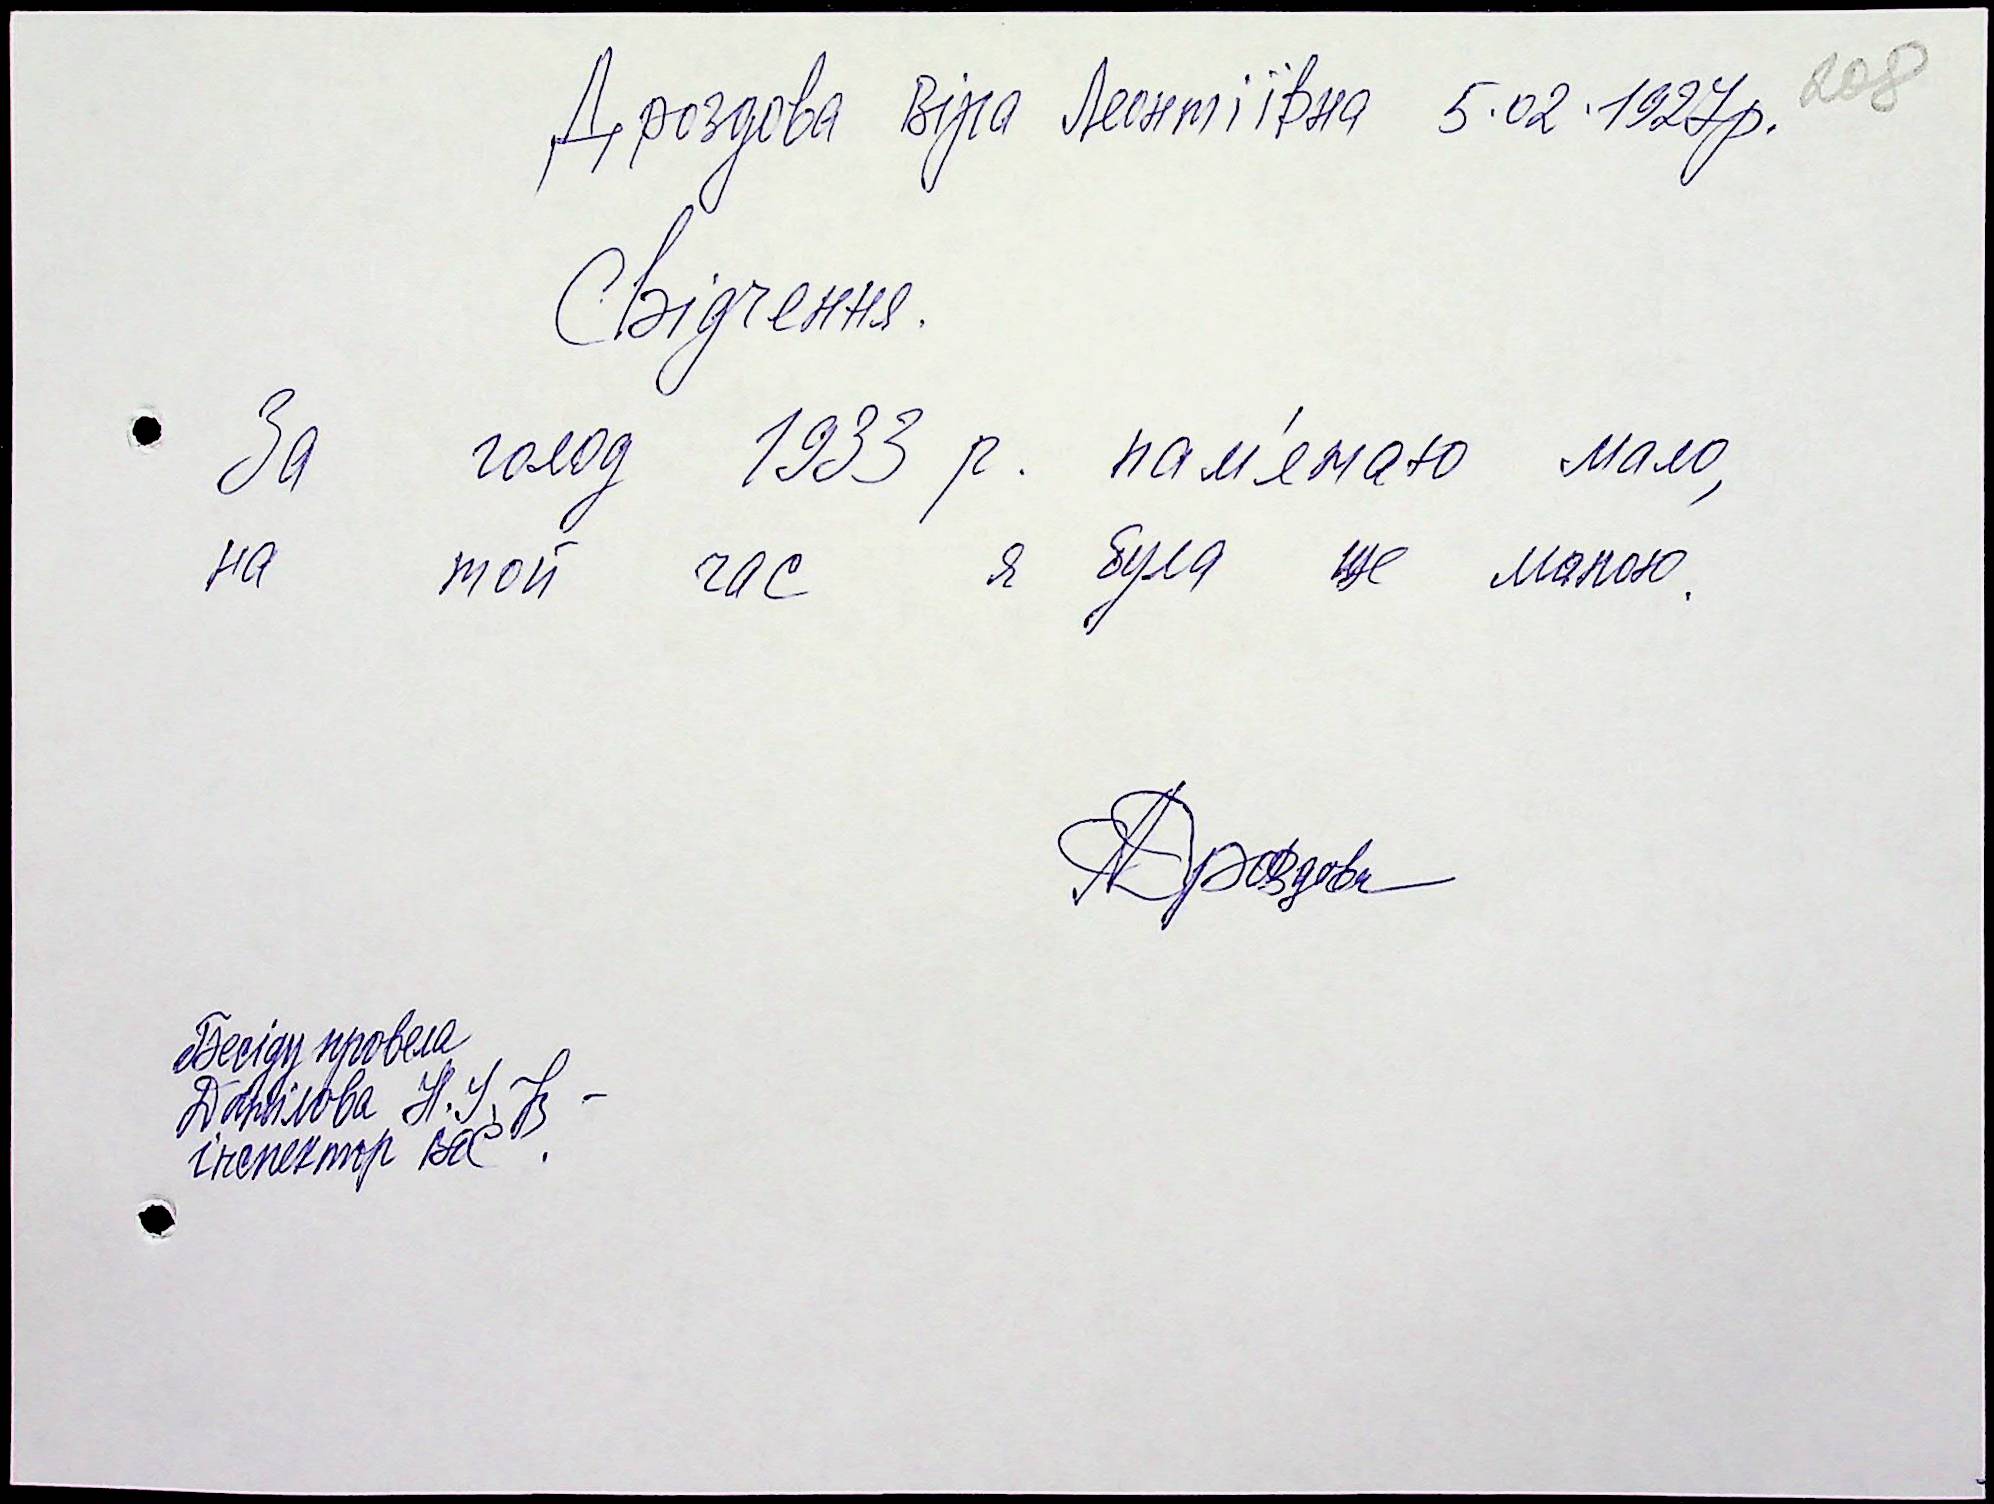 Дроздова Віра Леонтіївна 5.02.1927р. 208
Свідчення.
За голод 1933 р. пам'ятаю мало,
на той час я була ще малою.
Дроздова
Бесіду провела
Данілова Н.І.
інспектор ВОС.